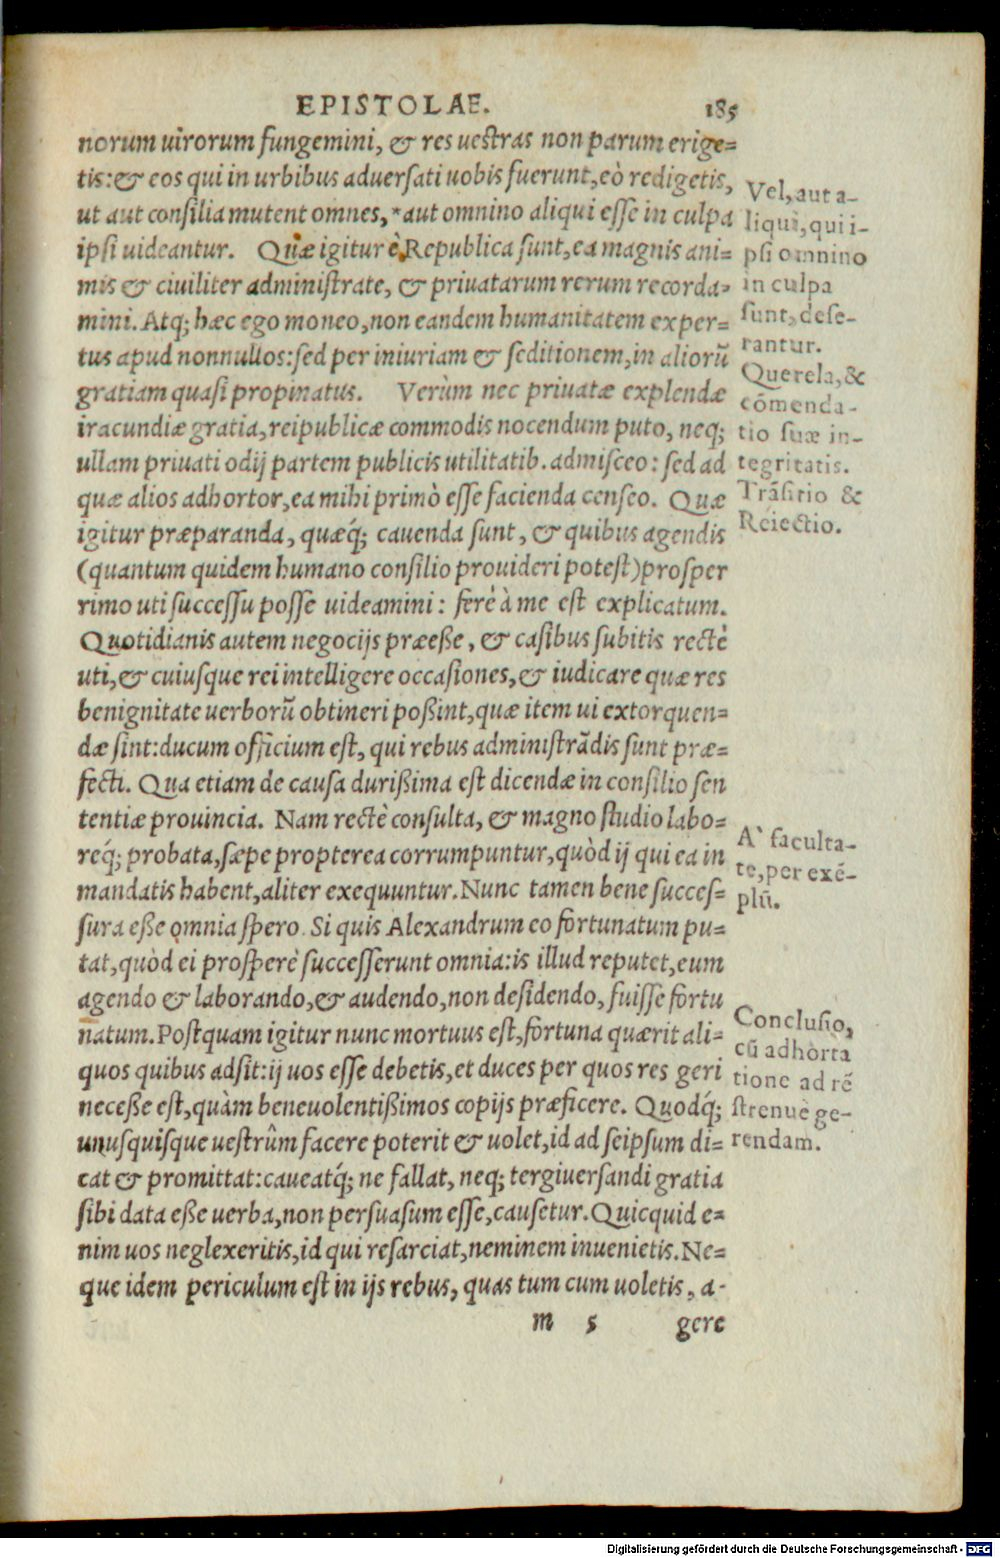 EPISTOLAE. 185
norum uirorum fungemini, & res uestras non parum erige=
tis:& eos qui in urbibus aduersati uobis fuerunt,eò redigetis,
ut aut consilia mutent omnes,*aut omnino aliqui esse in culpa
ipsi uideantur. Quæ igitur è Republica sunt,ea magnis ani=
mis & ciuiliter administrate, & priuatarum rerum recorda=
mini. Atq; hæc ego moneo,non eandem humanitatem exper=
tus apud nonnullos:sed per iniuriam & seditionem,in aliorũ
gratiam quasi propinatus. Verùm nec priuatæ explendæ
iracundiæ gratia,reipublicæ commodis nocendum puto, neq;
ullam priuati odij partem publicis utilitatib. admisceo: sed ad
quæ alios adhortor,ea mihi primò esse facienda censeo. Quæ
igitur præparanda, quæq́; cauenda sunt, & quibus agendis
(quantum quidem humano consilio prouideri potest)prosper
rimo uti successu posse uideamini: ferè à me est explicatum.
Quotidianis autem negocijs præeße, & casibus subitis rectè
uti,& cuiusque rei intelligere occasiones,& iudicare quæ res
benignitate uerborũ obtineri poßint,quæ item ui extorquen=
dæ sint:ducum officium est, qui rebus administrãdis sunt præ=
fecti. Qua etiam de causa durißima est dicendæ in consilio sen
tentiæ prouincia. Nam rectè consulta, & magno studio labo=
req́; probata,sæpe propterea corrumpuntur,quòd ij qui ea in
mandatis habent,aliter exequuntur. Nunc tamen bene succes=
sura eße omnia spero. Si quis Alexandrum eo fortunatum pu=
tat,quòd ei prosperè successerunt omnia:is illud reputet,eum
agendo & laborando,& audendo,non desidendo, fuisse fortu
natum. Postquam igitur nunc mortuus est,fortuna quærit ali=
quos quibus adsit:ij uos esse debetis,et duces per quos res geri
neceße est,quàm beneuolentißimos copijs præficere. Quodq́;
unusquisque uestrûm facere poterit & uolet,id ad seipsum di=
cat & promittat:caueatq́; ne fallat, neq; tergiuersandi gratia
sibi data eße uerba,non persuasum esse,causetur. Quicquid e=
nim uos neglexeritis,id qui resarciat,neminem inuenietis. Ne=
que idem periculum est in ijs rebus, quas tum cum uoletis, a-
m 5 gere
Vel, aut a-
liqui, qui i-
psi omnino
in culpa
sunt, dese-
rantur.
Querela, &
cõmenda-
tio suæ in-
tegritatis.
Trãsitio &
Reiectio.
A` faculta-
te,per exẽ-
plũ.
Conclusio,
cũ adhorta
tione ad rẽ
strenuè ge-
rendam.
Digitalisierung gefördert durch die Deutsche Forschungsgemeinschaft - DFG